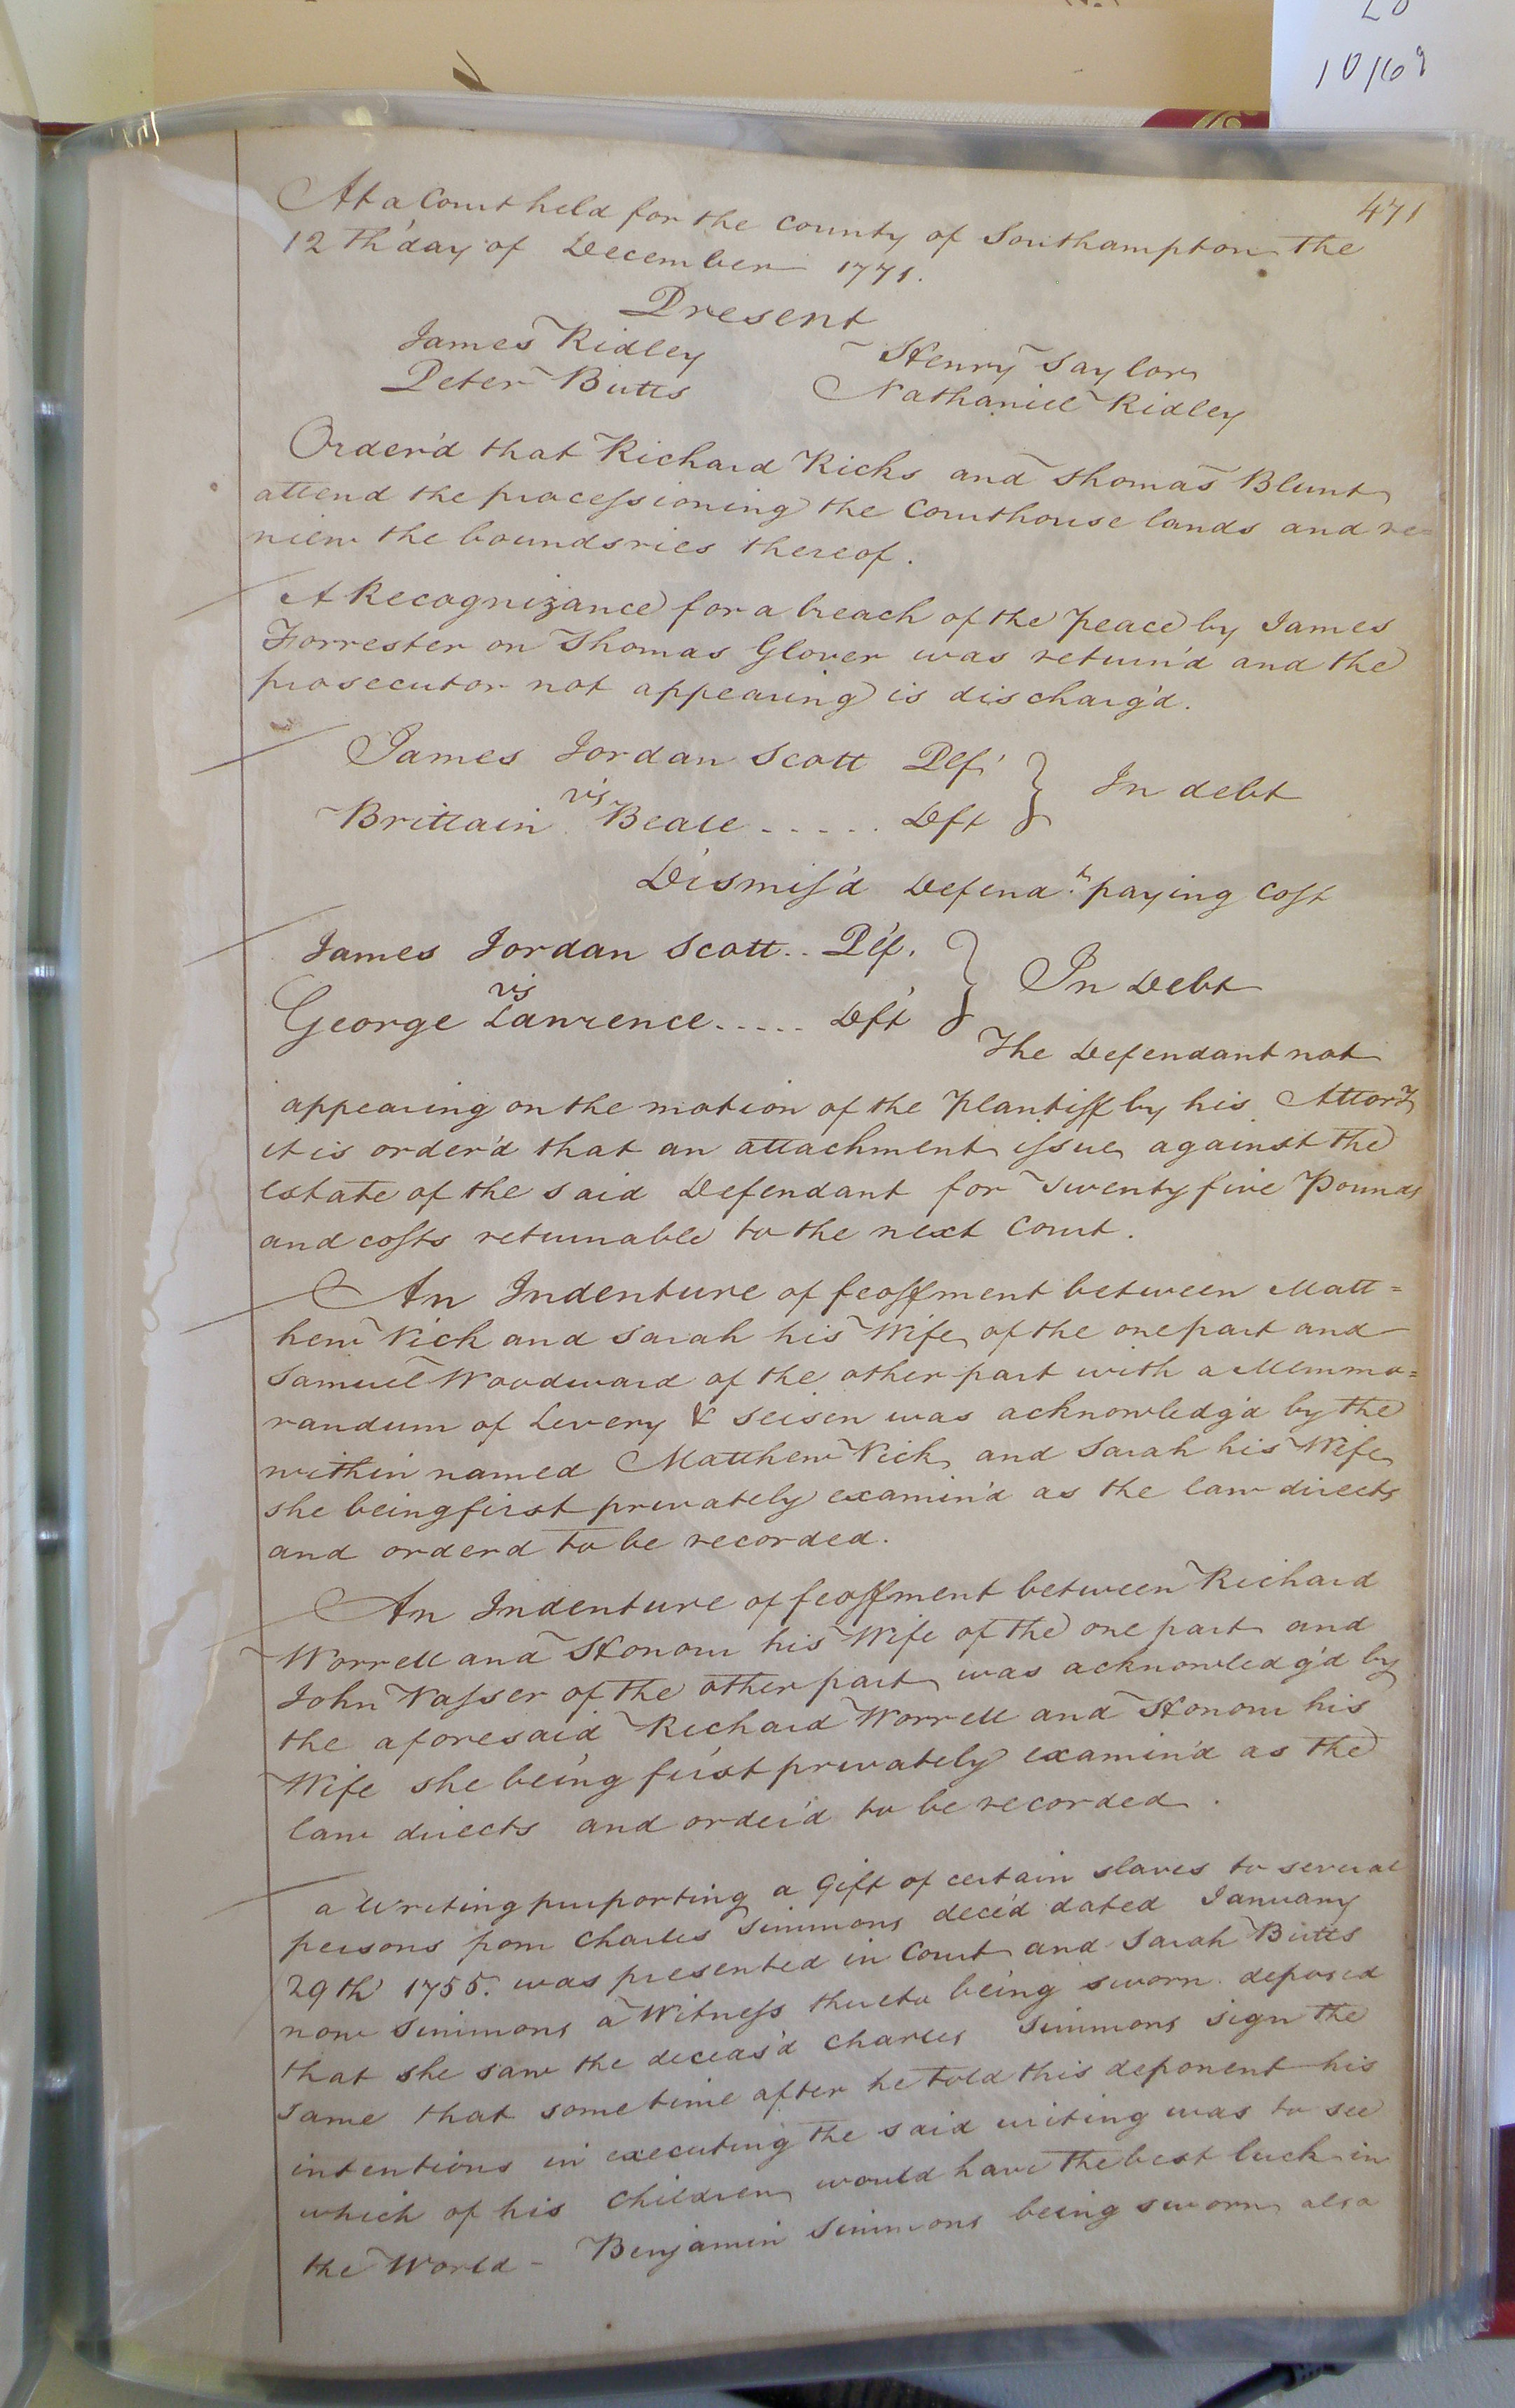 10/69
471
At a Court held for the County of Southampton the
12th day of December 1771.
Present
James Ridley
Henry Taylor
Peter Butts
Nathaniel Ridley
Order'd that Richard Ricks and Thomas Blunt
attend the processioning the Courthouse lands and re=
view the boundsries thereof.
A Recognizance for a breach of the Peace by James
Forrester on Thomas Glover was return'd and the
prosecutor not appearing is discharg'd.
James Jordan Scott Plf.
vs
In debt
Brittain Beale ..... Dft
Dismiss'd Defend.t paying Cost
James Jordan Scott .. Plf.
vs
In Debt
George Lawrence ..... Dft
The Defendant not
appearing on the motion of the Plantiff by his Attory
it is order'd that an attachment issue against the
estate of the said Defendant for Twenty five Pounds
and costs returnable to the next Court.
An Indenture of feoffment between Matt=
hew Vick and Sarah his Wife of the one part and
Samuel Woodward of the other part with a Memmo=
randum of Levery & seisen was acknowledg'd by the
within named Matthew Vick and Sarah his Wife
she being first privately examin'd as the law directs
and orderd to be recorded.
An Indenture of feoffment between Richard
Worrell and Honour his Wife of the one part and
John Vasser of the other part was acknowledg'd by
the aforesaid Richard Worrell and Honour his
Wife she being first privately examin'd as the
law directs and order'd to be recorded.
a Writing purporting a Gift of certain slaves to several
persons from Charles Simmons dece'd dated January
29th 1755. was presented in Court and Sarah Butts
now Simmons a Witness thereto being sworn deposed
that she saw the deceas'd Charles Simmons sign the
same that some time after he told this deponent his
intentions in executing the said writing was to see
which of his Children would have the best luck in
the World - Benjamin Simmons being sworn also